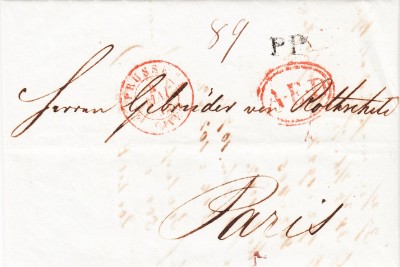 89
PP
PRUSSE
A.E.D.
Herren Gebrüder von Rothschild
Paris